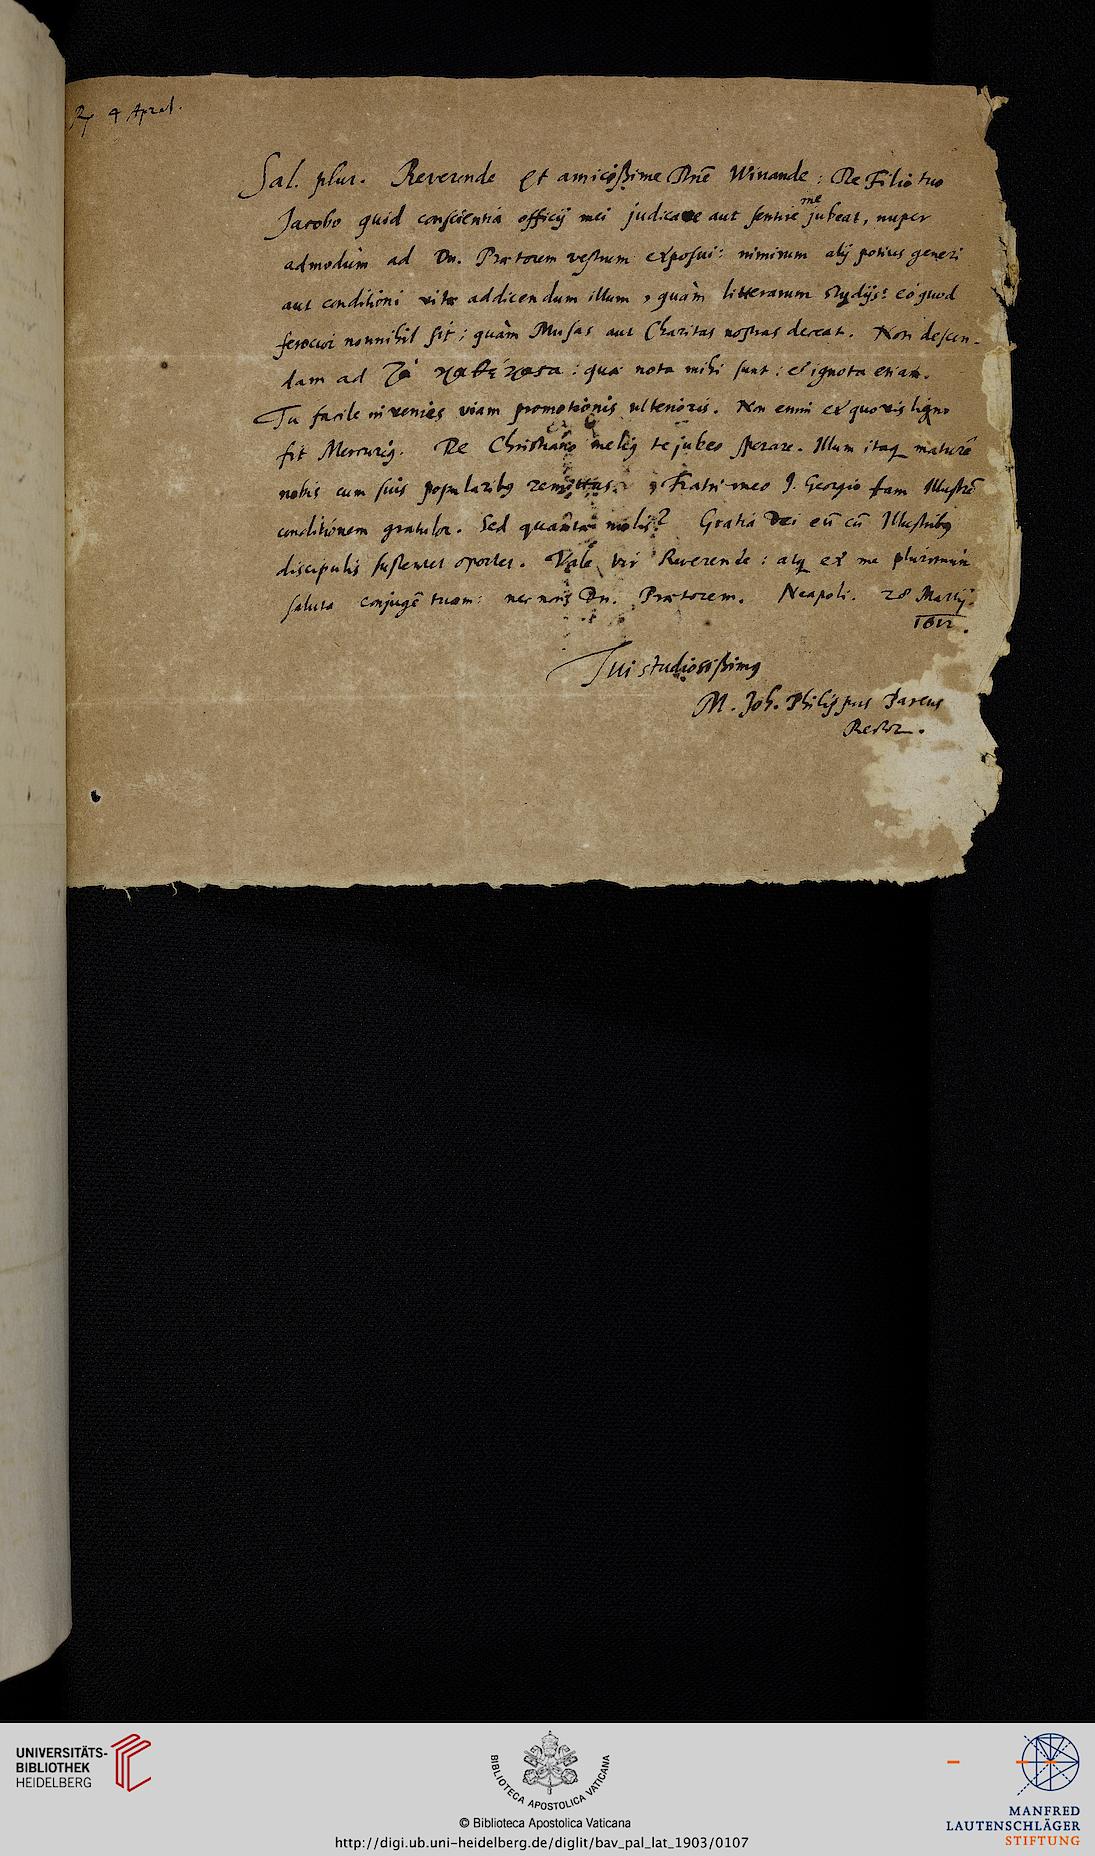 Rx 4 Aprel.
Sal. plur. Reverende et amicißime Dnē Winande: De Filio tuo
Jacobo quid conscientia officij mei judicare aut sentire me jubeat, nuper
admodùm ad Dn. Prætorem vestrum exposui: nimirum alij potius generi
aut conditioni vitæ addicendum illum, quàm litterarum studijs: eó quod
ferocior nonnihil sit; quàm Musas aut Charitas nostras deceat. Non descen-
dam ad τὰ καθέκαστα: quæ nota mihi sunt: et ignota etiam.
Tu facile invenies viam promotionis ulterioris. Non enim ex quovis ligno
fit Mercurius. De Christiano melius te jubeo sperare. Illum itaq maturè
nobis cum suis popularibus remittas. Fratri meo J. Georgio tam Illustrē
conditionem gratulor. Sed quanta molis? Gratia Dei eū cū Illustribus
discipulis sustentet oportet. Vale vir Reverende: atq ex me plurimùm
saluta conjugē tuam: nec non Dn. Prætorem. Neapoli. 28 Martij.
1612.
Tui studiosißimus
M. Joh. Philippus Pareus
Rector.
UNIVERSITÄTS-
BIBLIOTHEK
HEIDELBERG
BIBLIOTECA APOSTOLICA VATICANA
© Biblioteca Apostolica Vaticana
http://digi.ub.uni-heidelberg.de/diglit/bav_pal_lat_1903/0107
MANFRED
LAUTENSCHLÄGER
STIFTUNG